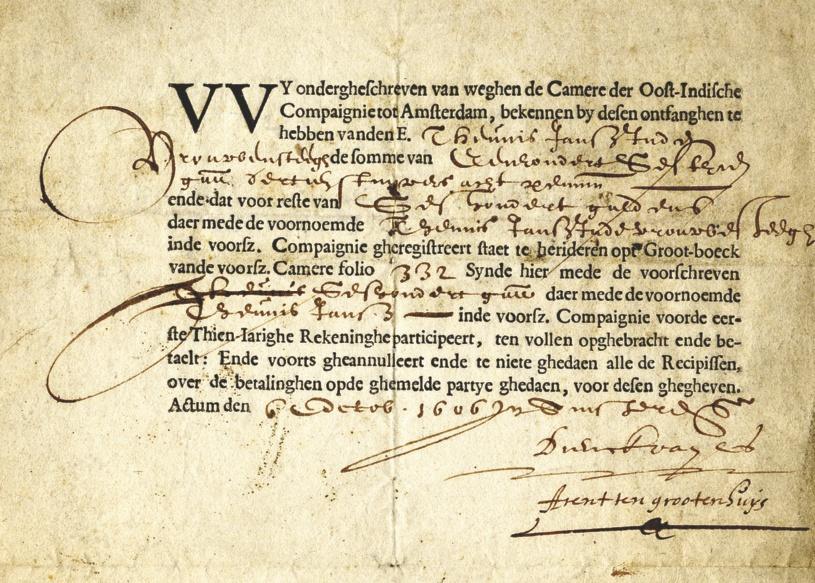 VVY ondergheschreven van weghen de Camere der Oost-Indische
Compaignie tot Amsterdam, bekennen by desen ontfanghen te
hebben vanden E. Theunis Jansz Inde
de somme van
stuyvers acht
ende dat voor reste van Seshondert guldens
daer mede de voornoemde Theunis Jansz Inde vrouwesteegh
inde voorsz. Compaignie gheregistreert staet te herideren opt Groot-boeck
vande voorsz. Camere folio 332 Synde hier mede de voorschreven
Seshondert daer mede de voornoemde
Theunis Jansz inde voorsz. Compaignie voorde eer-
ste Thien-Iarighe Rekeninghe participeert, ten vollen opghebracht ende be-
taelt: Ende voorts gheannulleert ende te niete ghedaen alle de Recipissen,
over de betalinghen opde ghemelde partye ghedaen, voor desen ghegheven.
Actum den 1606
Arent ten grootenhuys